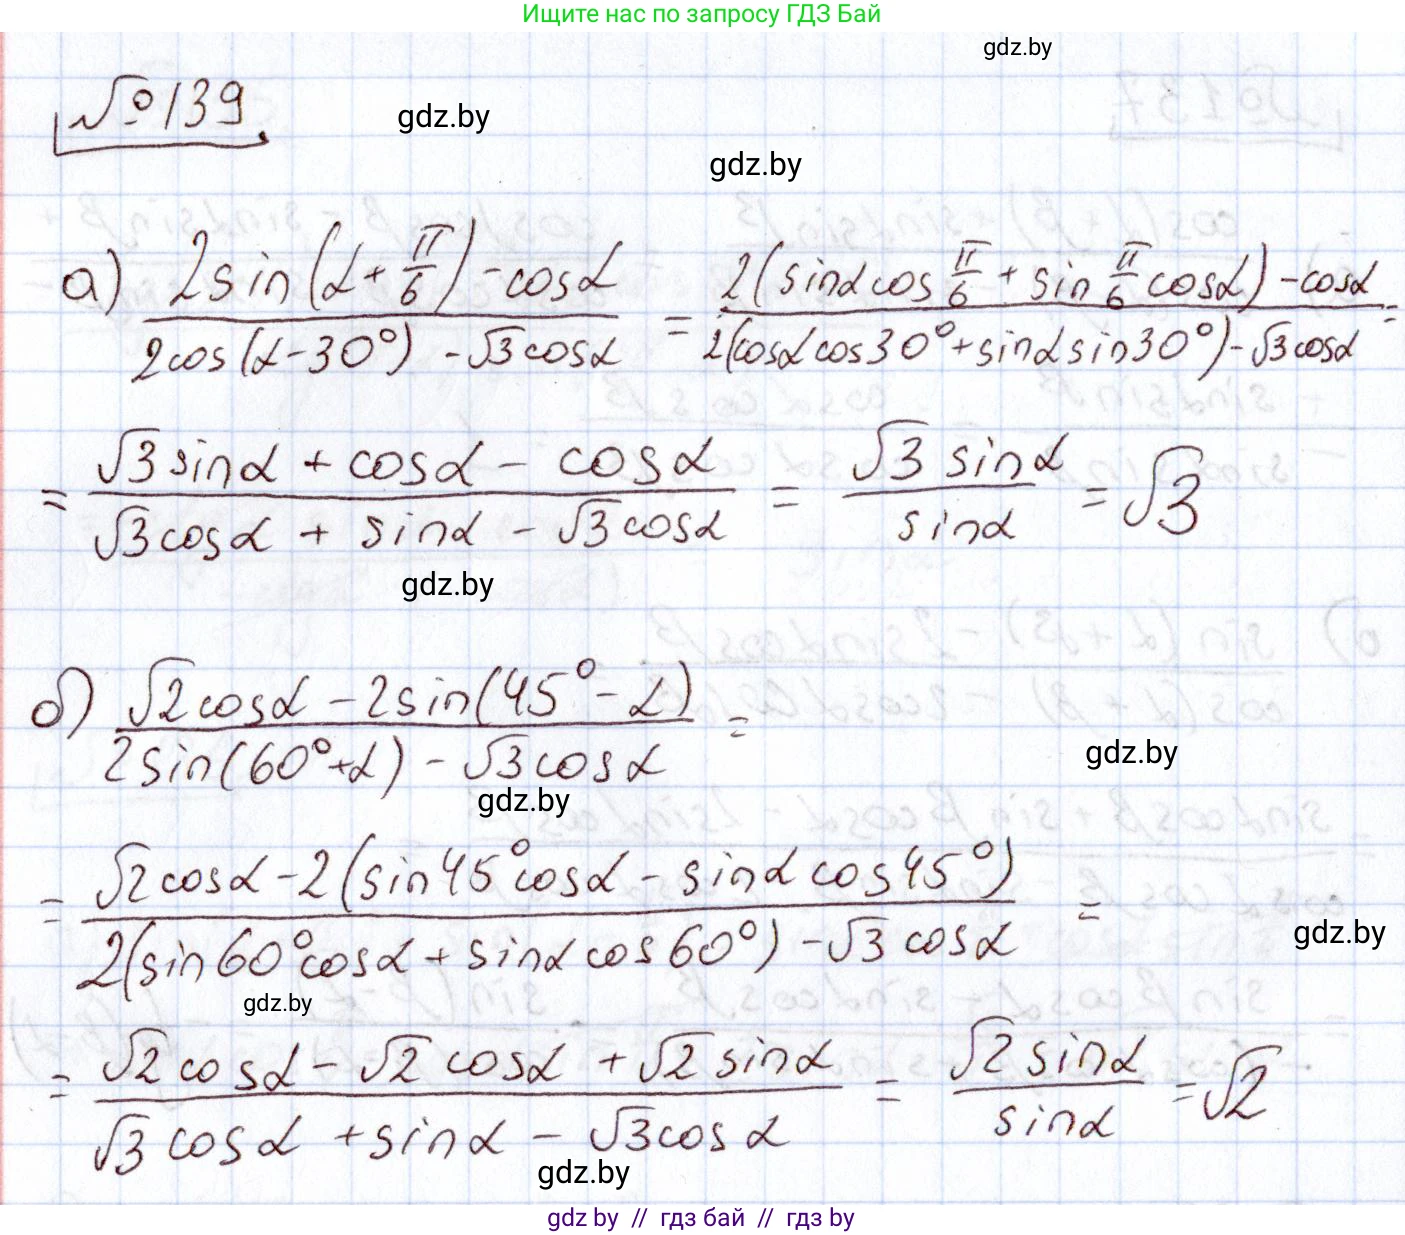 Ищите нас по запросу ГДЗ Бай
gdz.by
№139
gdz.by
gdz.by
а) (2sin(α + π/6) - cosα) / (2cos(α - 30°) - √3cosα) = (2(sinα cos π/6 + sin π/6 cosα) - cosα) / (2(cosα cos30° + sinα sin30°) - √3cosα) =
= (√3sinα + cosα - cosα) / (√3cosα + sinα - √3cosα) = √3 sinα / sinα = √3
gdz.by
б) (√2cosα - 2sin(45° - α)) / (2sin(60° + α) - √3cosα) =
gdz.by
gdz.by
= (√2cosα - 2(sin45°cosα - sinα cos45°)) / (2(sin60°cosα + sinα cos60°) - √3 cosα) =
gdz.by
gdz.by
= (√2cosα - √2cosα + √2sinα) / (√3cosα + sinα - √3cosα) = √2sinα / sinα = √2
gdz.by
gdz by // гдз бай // гдз by